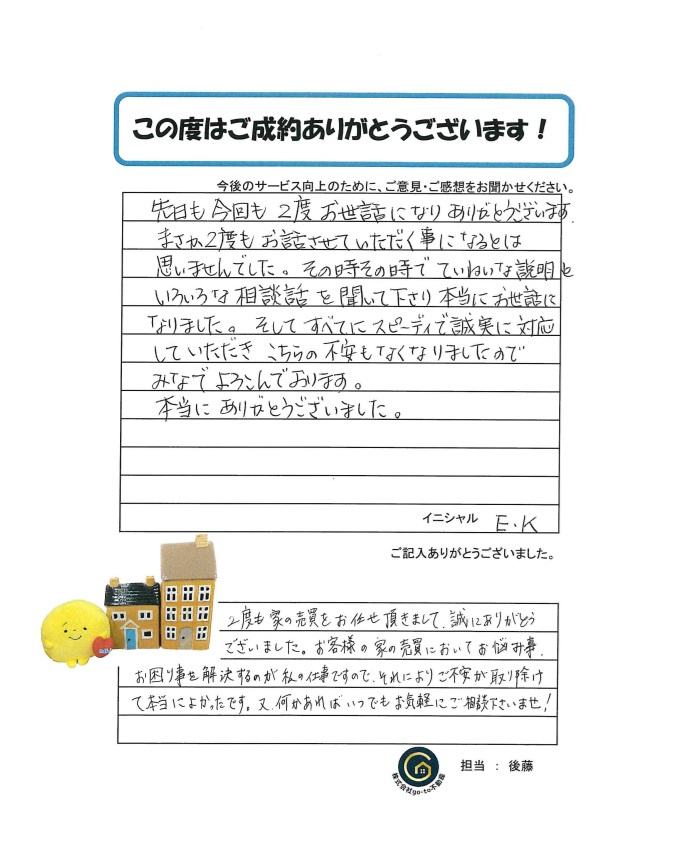 この度はご成約ありがとうございます！
今後のサービス向上のために、ご意見・ご感想をお聞かせください。
先日も今回も 2度 お世話になり ありがとうございます.
まさか2度も お話させていただく事になるとは
思いませんでした。その時その時で ていねいな説明と
いろいろな 相談話 を聞いて下さり 本当にお世話に
なりました。そして すべてに スピーディで誠実に対応
していただき こちらの不安もなくなりましたので
みなで よろこんでおります。
本当に ありがとうございました。
イニシャル E.K
ご記入ありがとうございました。
2度も家の売買をお任せ頂きまして、誠にありがとう
でざいました。お客様の家の売買においてお悩み事、
お困り事を解決するのが私の仕事ですので、それによりご不安が取り除け
て本当によかったです。又、何かあればいつでもお気軽にご相談下さいませ！
株式会社go-to不動産
担当 ： 後藤